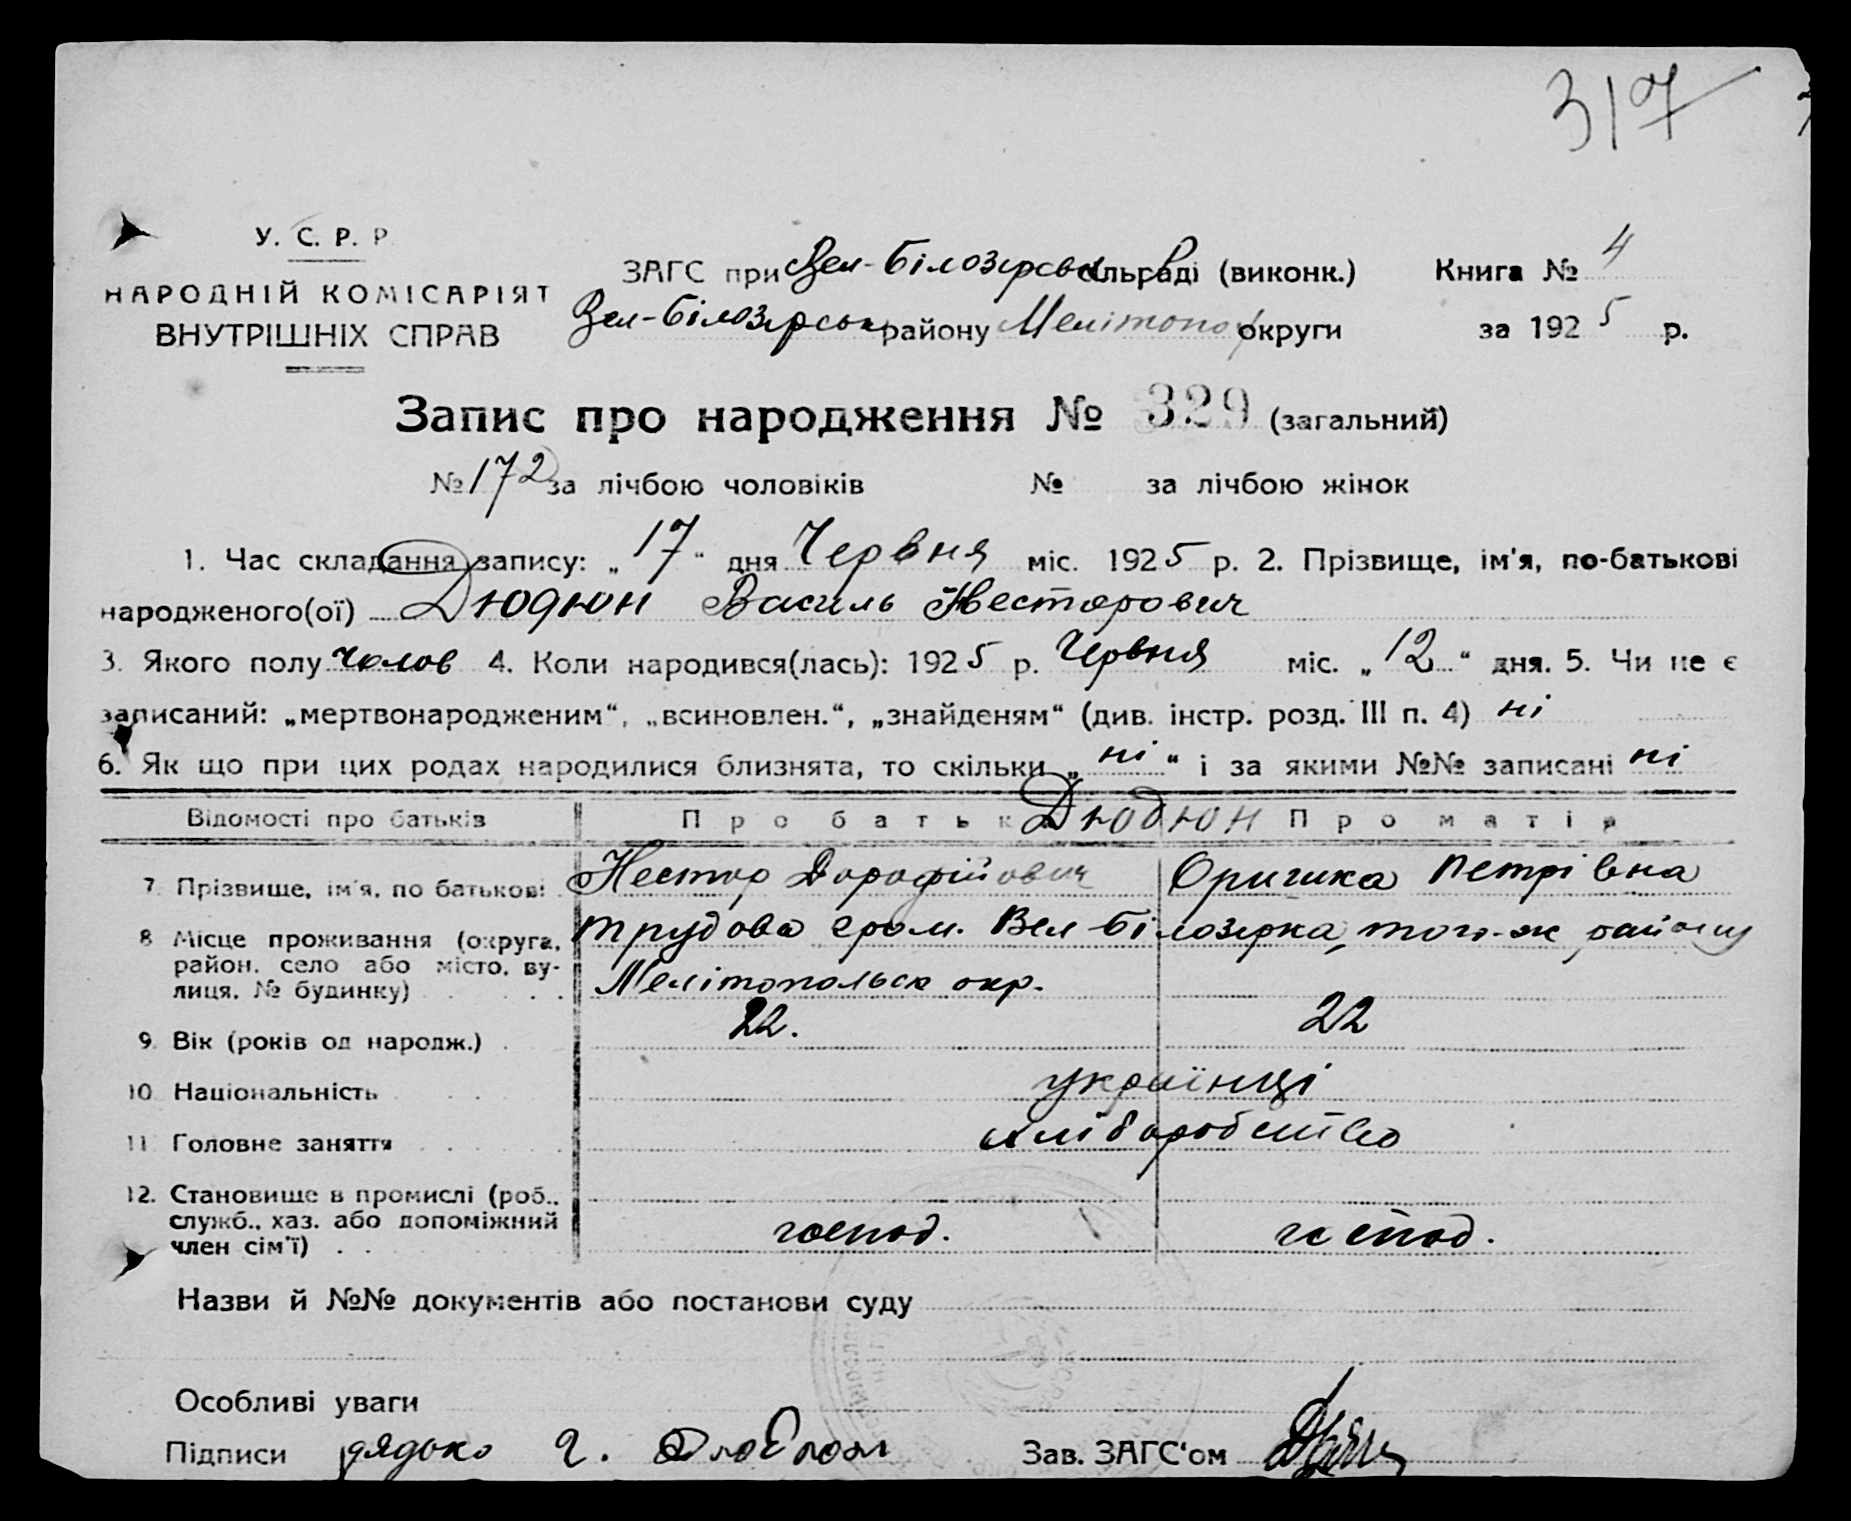 317
У. С. Р. Р.
НАРОДНІЙ КОМІСАРІЯТ
ВНУТРІШНІХ СПРАВ
ЗАГС при Вел-Білозірськ сільраді (виконк.)
Вел-Білозірськ району Мелітопол округи
Книга № 4
за 1925 р.
Запис про народження № 329 (загальний)
№ 172 за лічбою чоловіків № за лічбою жінок
1. Час складання запису: „17“ дня Червня міс. 1925 р. 2. Прізвище, ім'я, по-батькові
народженого(ої) Дюдюн Василь Несторович
3. Якого полу чолов 4. Коли народився(лась): 1925 р. Червня міс. „12“ дня. 5. Чи не є
записаний: „мертвонародженим“, „всиновлен.“, „знайденям“ (див. інстр. розд. III п. 4) ні
6. Як що при цих родах народилися близнята, то скільки „ні“ і за якими №№ записані ні
Відомості про батьків Про батька Дюдюн Про матір
7. Прізвище, ім'я, по батькові Нестор Дорофійович Оришка Петрівна
8. Місце проживання (округа, район, село або місто, вулиця, № будинку) трудова гром. Вел-Білозірка, того-ж району
Мелітопольск окр.
9. Вік (років од народж.) 22. 22
10. Національність українці
11. Головне заняття хліборобство
12. Становище в промислі (роб.,
служб., хаз. або допоміжний
член сім'ї) господ. господ.
Назви й №№ документів або постанови суду
Особливі уваги
Підписи дядько г. Дюдюн Зав. ЗАГС'ом